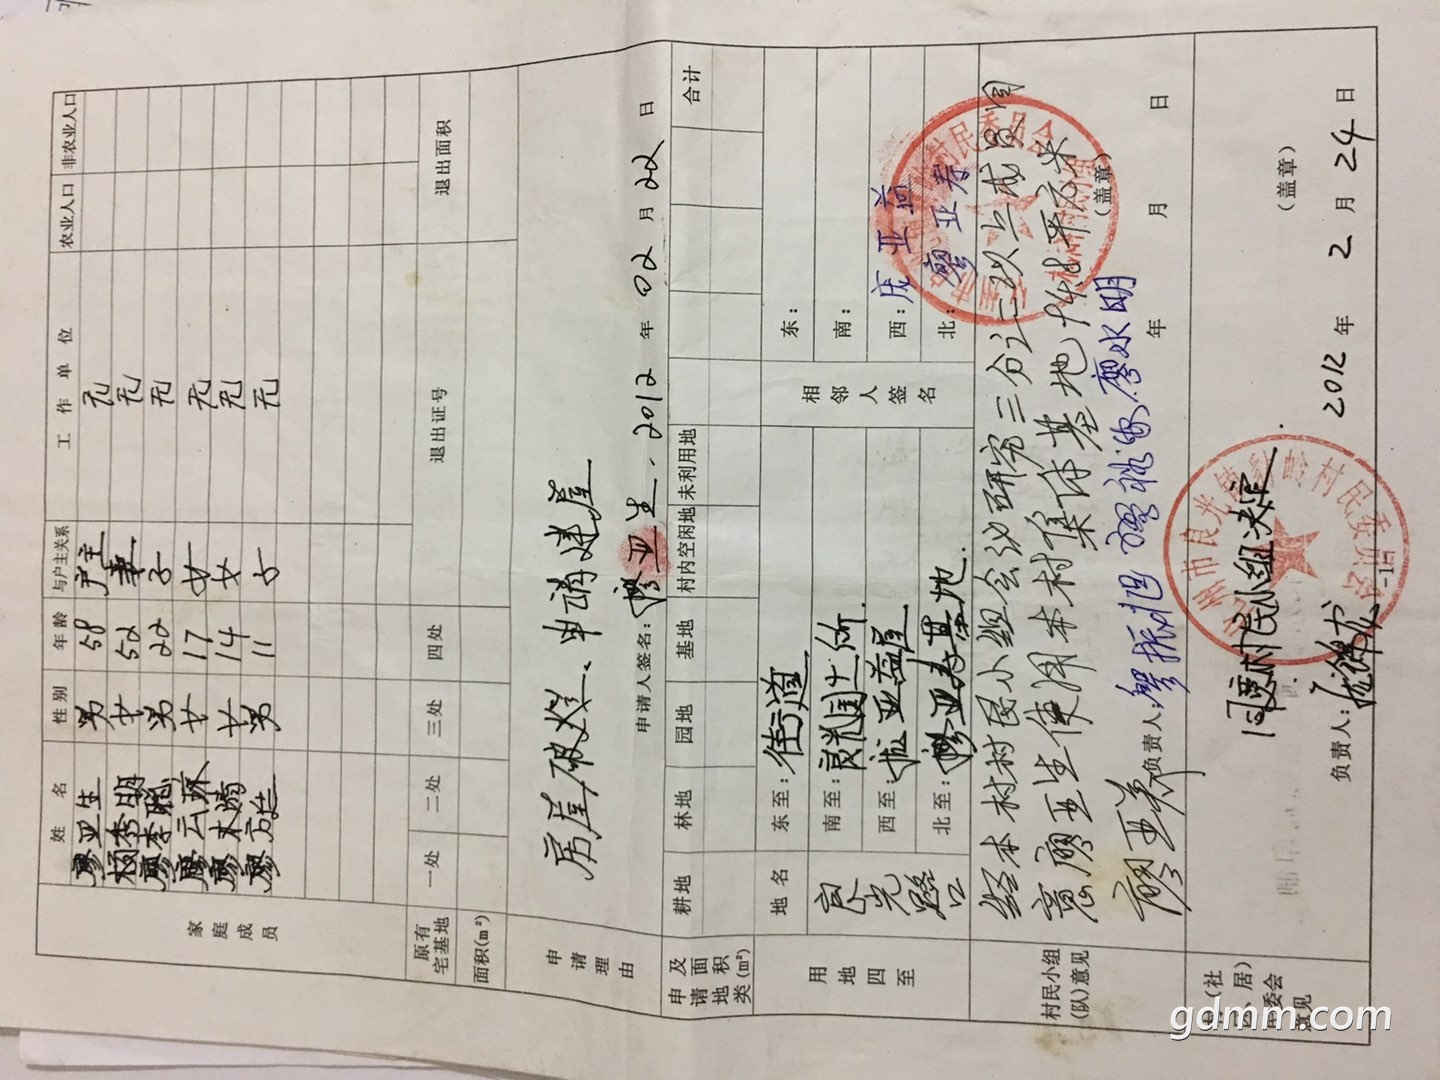 家庭成员
姓名 性别 年龄 与户主关系 工作单位 农业人口 非农业人口
廖亚生 男 58 户主 无
杨秀明 女 52 妻 无
廖李聪 男 22 子 无
廖云环 女 17 女 无
廖木 女 14 女 无
廖 男 11 无
原有宅基地 一处 二处 三处 四处 退出证号 退出面积
面积(m²)
申请理由
房屋破烂、申请建屋
申请人签名:廖亚生 2012年02月22日
申请地类及面积(m²) 耕地 林地 园地 基地 村内空闲地 未利用地 合计
用地四至
地名 良光路口
东至:街道
南至:良光国土所
西至:庞亚益屋
北至:廖亚寿基地
相邻人签名
东:
南:
西:庞亚益
北:廖亚寿
村民小组(队)意见
经本村村民小组会议研究三分之二以上成员同
意廖亚生使用本村集体基地 平方米
(盖章)
负责人:廖振坦 廖水明
廖亚养
年 月 日
村(社区、居)民委会意见
同意村民小组决定.
(盖章)
负责人:
2012年2月24日
-1-
gdmm.com